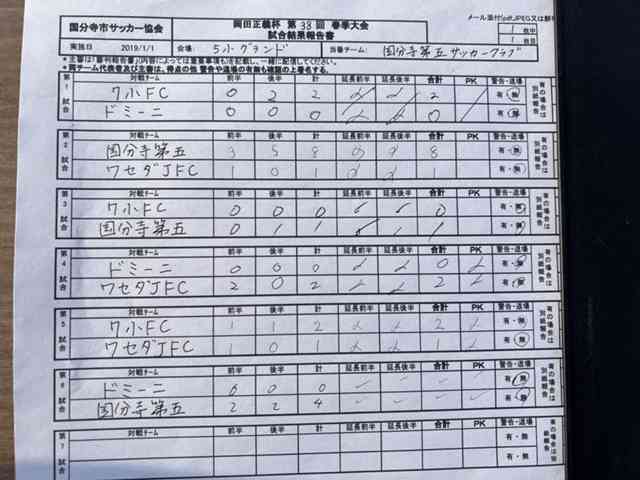 国分寺市サッカー協会 岡田正義杯 第38回 春季大会 メール添付pdfJPEG又は
試合結果報告書 1 枚中
1 枚目
実施日 2019/1/1 会場: 5小グランド 当番チーム: 国分寺第五サッカークラブ
*主審は「審判報告書」の内容によっては重要事項も記載し、一緒に配信してください。
*両チーム代表者及び主審は、得点の他 警告や退場の有無も確認の上署名する。
第1試合 対戦チーム 前半 後半 計 延長前半 延長後半 合計 PK 警告・退場 有の場合は別紙報告
7小FC 0 2 2 2 有・無
ドミーニ 0 0 0 0 有・無
第2試合 対戦チーム 前半 後半 計 延長前半 延長後半 合計 PK 警告・退場 有の場合は別紙報告
国分寺第五 3 5 8 8 有・無
ワセダJFC 1 0 1 1 有・無
第3試合 対戦チーム 前半 後半 計 延長前半 延長後半 合計 PK 警告・退場 有の場合は別紙報告
7小FC 0 0 0 0 有・無
国分寺第五 0 1 1 1 有・無
第4試合 対戦チーム 前半 後半 計 延長前半 延長後半 合計 PK 警告・退場 有の場合は別紙報告
ドミーニ 0 0 0 0 有・無
ワセダJFC 2 0 2 2 有・無
第5試合 対戦チーム 前半 後半 計 延長前半 延長後半 合計 PK 警告・退場 有の場合は別紙報告
7小FC 1 1 2 2 有・無
ワセダJFC 1 0 1 1 有・無
第6試合 対戦チーム 前半 後半 計 延長前半 延長後半 合計 PK 警告・退場 有の場合は別紙報告
ドミーニ 0 0 0 有・無
国分寺第五 2 2 4 有・無
第7試合 対戦チーム 前半 後半 計 延長前半 延長後半 合計 PK 警告・退場 有の場合は別紙報告
有・無
有・無